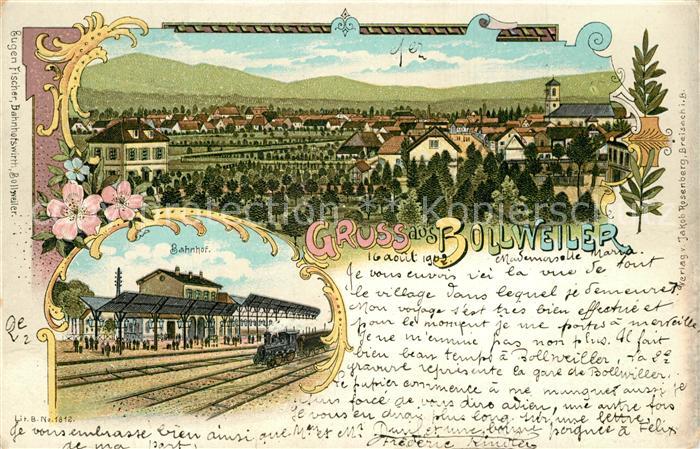 Eugen Fischer, Bahnhofswirth, Bollweiler.
1er
GRUSS aus BOLLWEILER
Bahnhof.
Verlag v. Jakob Rosenberg, Breisach i. B.
16 août 1902
Mademoiselle Maria
Je vous envois ici la vue de tout
le village dans lequel je demeure
Mon voyage s'est très bien effectué et
pour le moment je me portes à merveille
Je ne m'ennue pas non plus. Il fait
bien beau temps à Bollweiller, la 2e
gravure représente la gare de Bollwiller.
Le papier commence à me manquer aussi je
suis forcé de vous dire adieu, une autre fois
je vous en dirai plus long sur une lettre.
Je vous embrasse bien ainsi que Mme et Mr
et une bonne poignée à Felix
de ma part.
Frédéric
2e
Lit. B. No. 1812.